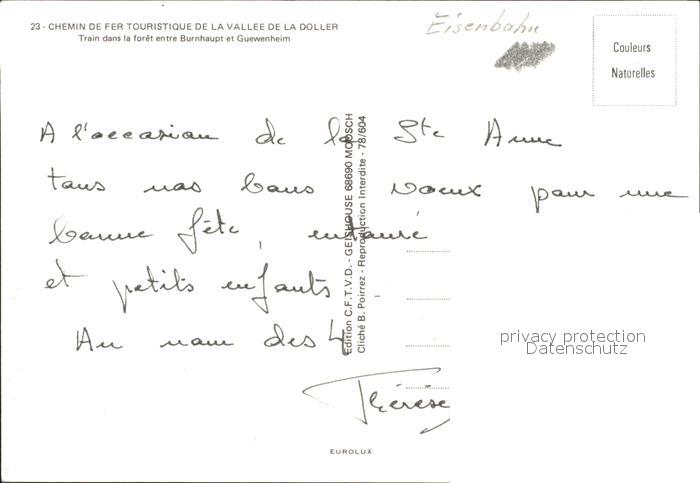 23 - CHEMIN DE FER TOURISTIQUE DE LA VALLEE DE LA DOLLER
Train dans la forêt entre Burnhaupt et Guewenheim
Eisenbahn
Couleurs
Naturelles
A l'occasion de la Ste Anne
tous nos bons voeux pour une
bonne fête, entouré
et petits enfants
Au nom des 4
Thérèse
Edition C.F.T.V.D. - GEISHOUSE 68690 MOOSCH
Cliché B. Poirrez - Reproduction Interdite - 78/604
privacy protection
Datenschutz
EUROLUX